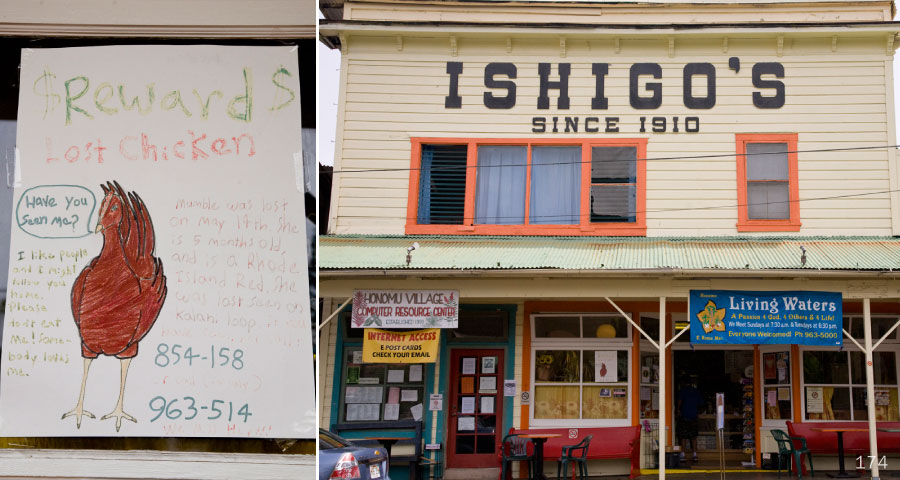 $ Reward $
Lost Chicken
Have you
seen me?
I like people
and I might
follow you
home.
Please
don't eat
me! Some-
body loves
me.
Mumble was lost
on May 19th. She
is 5 months old
and is a Rhode
Island Red. She
was last seen on
loop
854-158
963-514
ISHIGO'S
SINCE 1910
HONOMU VILLAGE
COMPUTER RESOURCE CENTER
INTERNET ACCESS
E-POST CARDS
CHECK YOUR EMAIL
Living Waters
A Passion 4 God, 4 Others & 4 Life!
We Meet Sundays at 7:30 a.m. & Tuesdays at 6:30 p.m.
Everyone Welcomed! Ph 963-5000
174